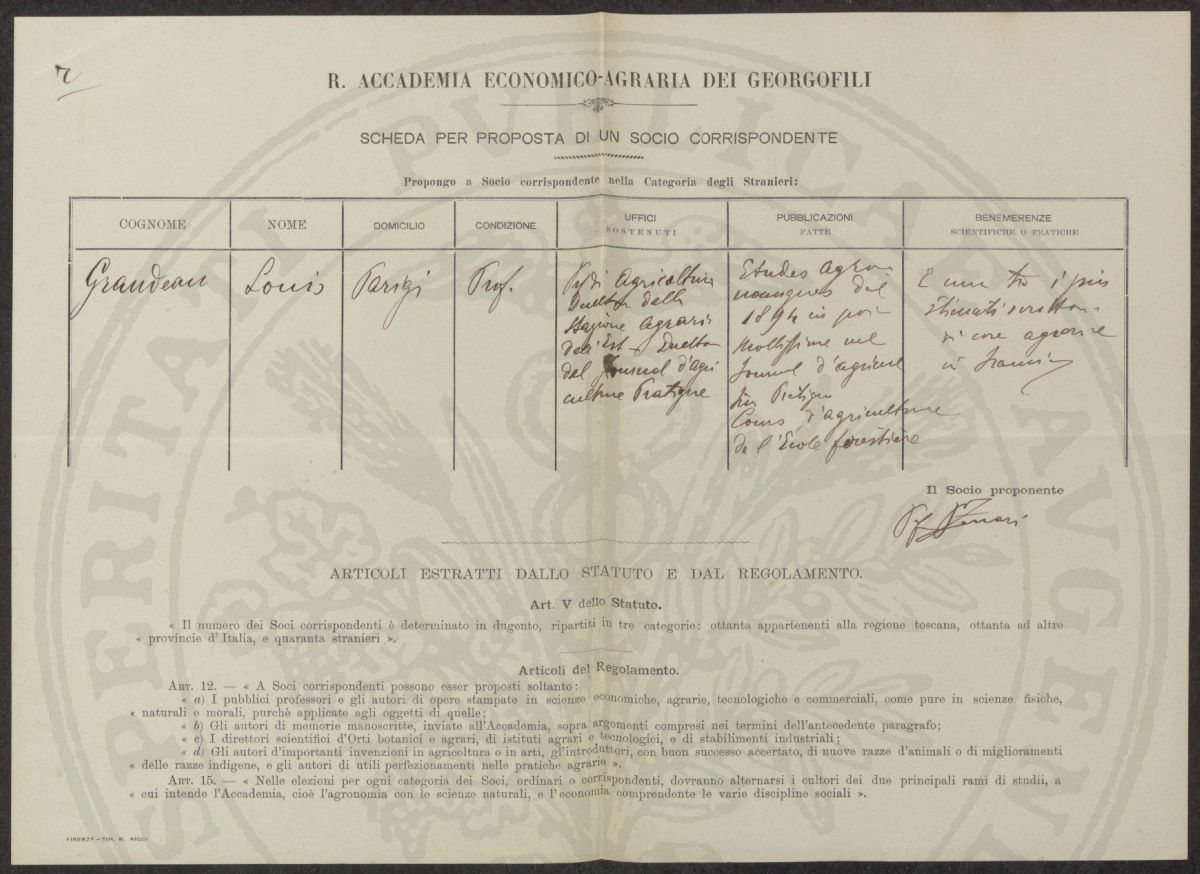 R. ACCADEMIA ECONOMICO-AGRARIA DEI GEORGOFILI
SCHEDA PER PROPOSTA DI UN SOCIO CORRISPONDENTE
Propongo a Socio corrispondente nella Categoria degli Stranieri:
COGNOME
NOME
DOMICILIO
CONDIZIONE
UFFICI
SOSTENUTI
PUBBLICAZIONI
FATTE
BENEMERENZE
SCIENTIFICHE O PRATICHE
Grandeau
Louis
Parigi
Prof.
Agricoltura
Direttore della
Stazione Agraria
dell'Est - Direttore
del Journal d'agri
culture Pratique
Etudes Agro-
nomiques dal
in poi
Moltissime nel
Journal d'agricul
ture Pratique
Cours d'agriculture
de l'Ecole forestière
È uno tra i più
stimati scritto-
ri di cose agrarie
in Francia
Il Socio proponente
ARTICOLI ESTRATTI DALLO STATUTO E DAL REGOLAMENTO.
Art. V dello Statuto.
« Il numero dei Soci corrispondenti è determinato in dugento, ripartiti in tre categorie: ottanta appartenenti alla regione toscana, ottanta ad altre
« provincie d'Italia, e quaranta stranieri ».
Articoli del Regolamento.
ART. 12. — « A Soci corrispondenti possono esser proposti soltanto:
« a) I pubblici professori e gli autori di opere stampate in scienze economiche, agrarie, tecnologiche e commerciali, come pure in scienze fisiche,
« naturali e morali, purchè applicate agli oggetti di quelle;
« b) Gli autori di memorie manoscritte, inviate all'Accademia, sopra argomenti compresi nei termini dell'antecedente paragrafo;
« c) I direttori scientifici d'Orti botanici e agrari, di istituti agrari e tecnologici, e di stabilimenti industriali;
« d) Gli autori d'importanti invenzioni in agricoltura o in arti, gl'introduttori, con buon successo accertato, di nuove razze d'animali o di miglioramenti
« delle razze indigene, e gli autori di utili perfezionamenti nelle pratiche agrarie ».
ART. 15. — « Nelle elezioni per ogni categoria dei Soci, ordinari o corrispondenti, dovranno alternarsi i cultori dei due principali rami di studii, a
« cui intende l'Accademia, cioè l'agronomia con le scienze naturali, e l'economia comprendente le varie discipline sociali ».
FIRENZE - TIP. M. RICCI